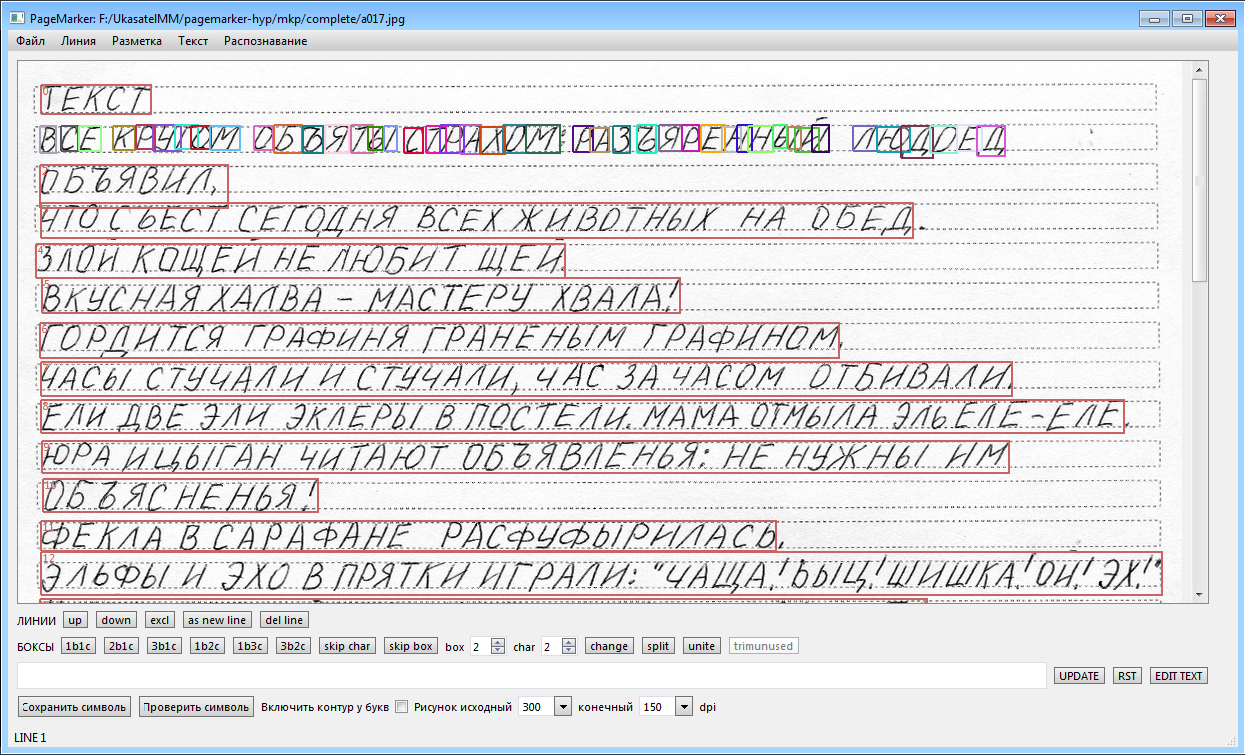 PageMarker: F:/UkasatelMM/pagemarker-hyp/mkp/complete/a017.jpg
Файл Линия Разметка Текст Распознавание
0
ТЕКСТ
ВСЕ КРУГОМ ОБЪЯТЫ СТРАХОМ: РАЗЪЯРЕННЫЙ ЛЮДОЕД
2
ОБЪЯВИЛ,
ЧТО СЪЕСТ СЕГОДНЯ ВСЕХ ЖИВОТНЫХ НА ОБЕД.
4
ЗЛОЙ КОЩЕЙ НЕ ЛЮБИТ ЩЕЙ.
5
ВКУСНАЯ ХАЛВА – МАСТЕРУ ХВАЛА!
6
ГОРДИТСЯ ГРАФИНЯ ГРАНЕНЫМ ГРАФИНОМ.
ЧАСЫ СТУЧАЛИ И СТУЧАЛИ, ЧАС ЗА ЧАСОМ ОТБИВАЛИ.
8
ЕЛИ ДВЕ ЭЛИ ЭКЛЕРЫ В ПОСТЕЛИ. МАМА ОТМЫЛА ЭЛЬ ЕЛЕ-ЕЛЕ.
9
ЮРА И ЦЫГАН ЧИТАЮТ ОБЪЯВЛЕНЬЯ: НЕ НУЖНЫ ИМ
10
ОБЪЯСНЕНЬЯ!
11
ФЕКЛА В САРАФАНЕ РАСФУФЫРИЛАСЬ.
12
ЭЛЬФЫ И ЭХО В ПРЯТКИ ИГРАЛИ: "ЧАЩА! БЫЦ! ШИШКА! ОЙ! ЭХ!"
ЛИНИИ up down excl as new line del line
БОКСЫ 1b1c 2b1c 3b1c 1b2c 1b3c 3b2c skip char skip box box 2 char 2 change split unite trimunused
UPDATE RST EDIT TEXT
Сохранить символь Проверить символь Включить контур у букв Рисунок исходный 300 конечный 150 dpi
LINE 1